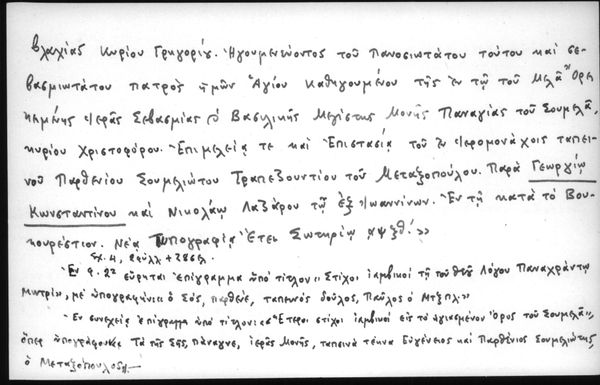 βλαχίας Κυρίου Γρηγορίου. Ἡγουμενεύοντος τοῦ Πανοσιωτάτου τούτου καὶ σε-
βασμιωτάτου πατρὸς ἡμῶν Ἁγίου Καθηγουμένου τῆς ἐν τῷ τοῦ Μελᾶ Ὄρει
κειμένης Ἱερᾶς Σεβασμίας Βασιλικῆς Μεγίστης Μονῆς Παναγίας τοῦ Σουμελᾶ,
κυρίου Χριστοφόρου. Ἐπιμελείᾳ τε καὶ Ἐπιστασίᾳ τοῦ ἐν Ἱερομονάχοις ταπει-
νοῦ Παρθενίου Σουμελιώτου Τραπεζουντίου τοῦ Μεταξοπούλου. Παρὰ Γεωργίῳ
Κωνσταντίνου καὶ Νικολάῳ Λαζάρου τῷ ἐξ Ἰωαννίνων. Ἐν τῇ κατὰ τὸ Βου-
κουρέστιον. Νέᾳ Τυπογραφίᾳ Ἔτει Σωτηρίῳ αψξθ΄.»
Σχ. 4, 2φύλλ + 286σελ.
Ἐν φ. 2α εὕρηται ἐπίγραμμα ὑπὸ τίτλον «Στίχοι ἰαμβικοὶ τῇ τοῦ Θεοῦ Λόγου Παναχράντῳ
Μητρί», μὲ ὑπογραφήν: «ὁ Σός, παρθένε, ταπεινὸς δοῦλος, Παῦλος ὁ
Ἐν συνεχείᾳ ἐπίγραμμα ὑπὸ τίτλον: «Ἕτεροι στίχοι ἰαμβικοὶ εἰς τὸ ἁγιασμένον Ὄρος τοῦ Σουμελᾶ»,
ὅπερ ὑπογράφουσι Τὰ τῆς Σῆς, πάναγνε, ἱερᾶς Μονῆς, ταπεινὰ τέκνα Εὐγένειος καὶ Παρθένιος Σουμελιώτης,
ὁ Μεταξόπουλος».—